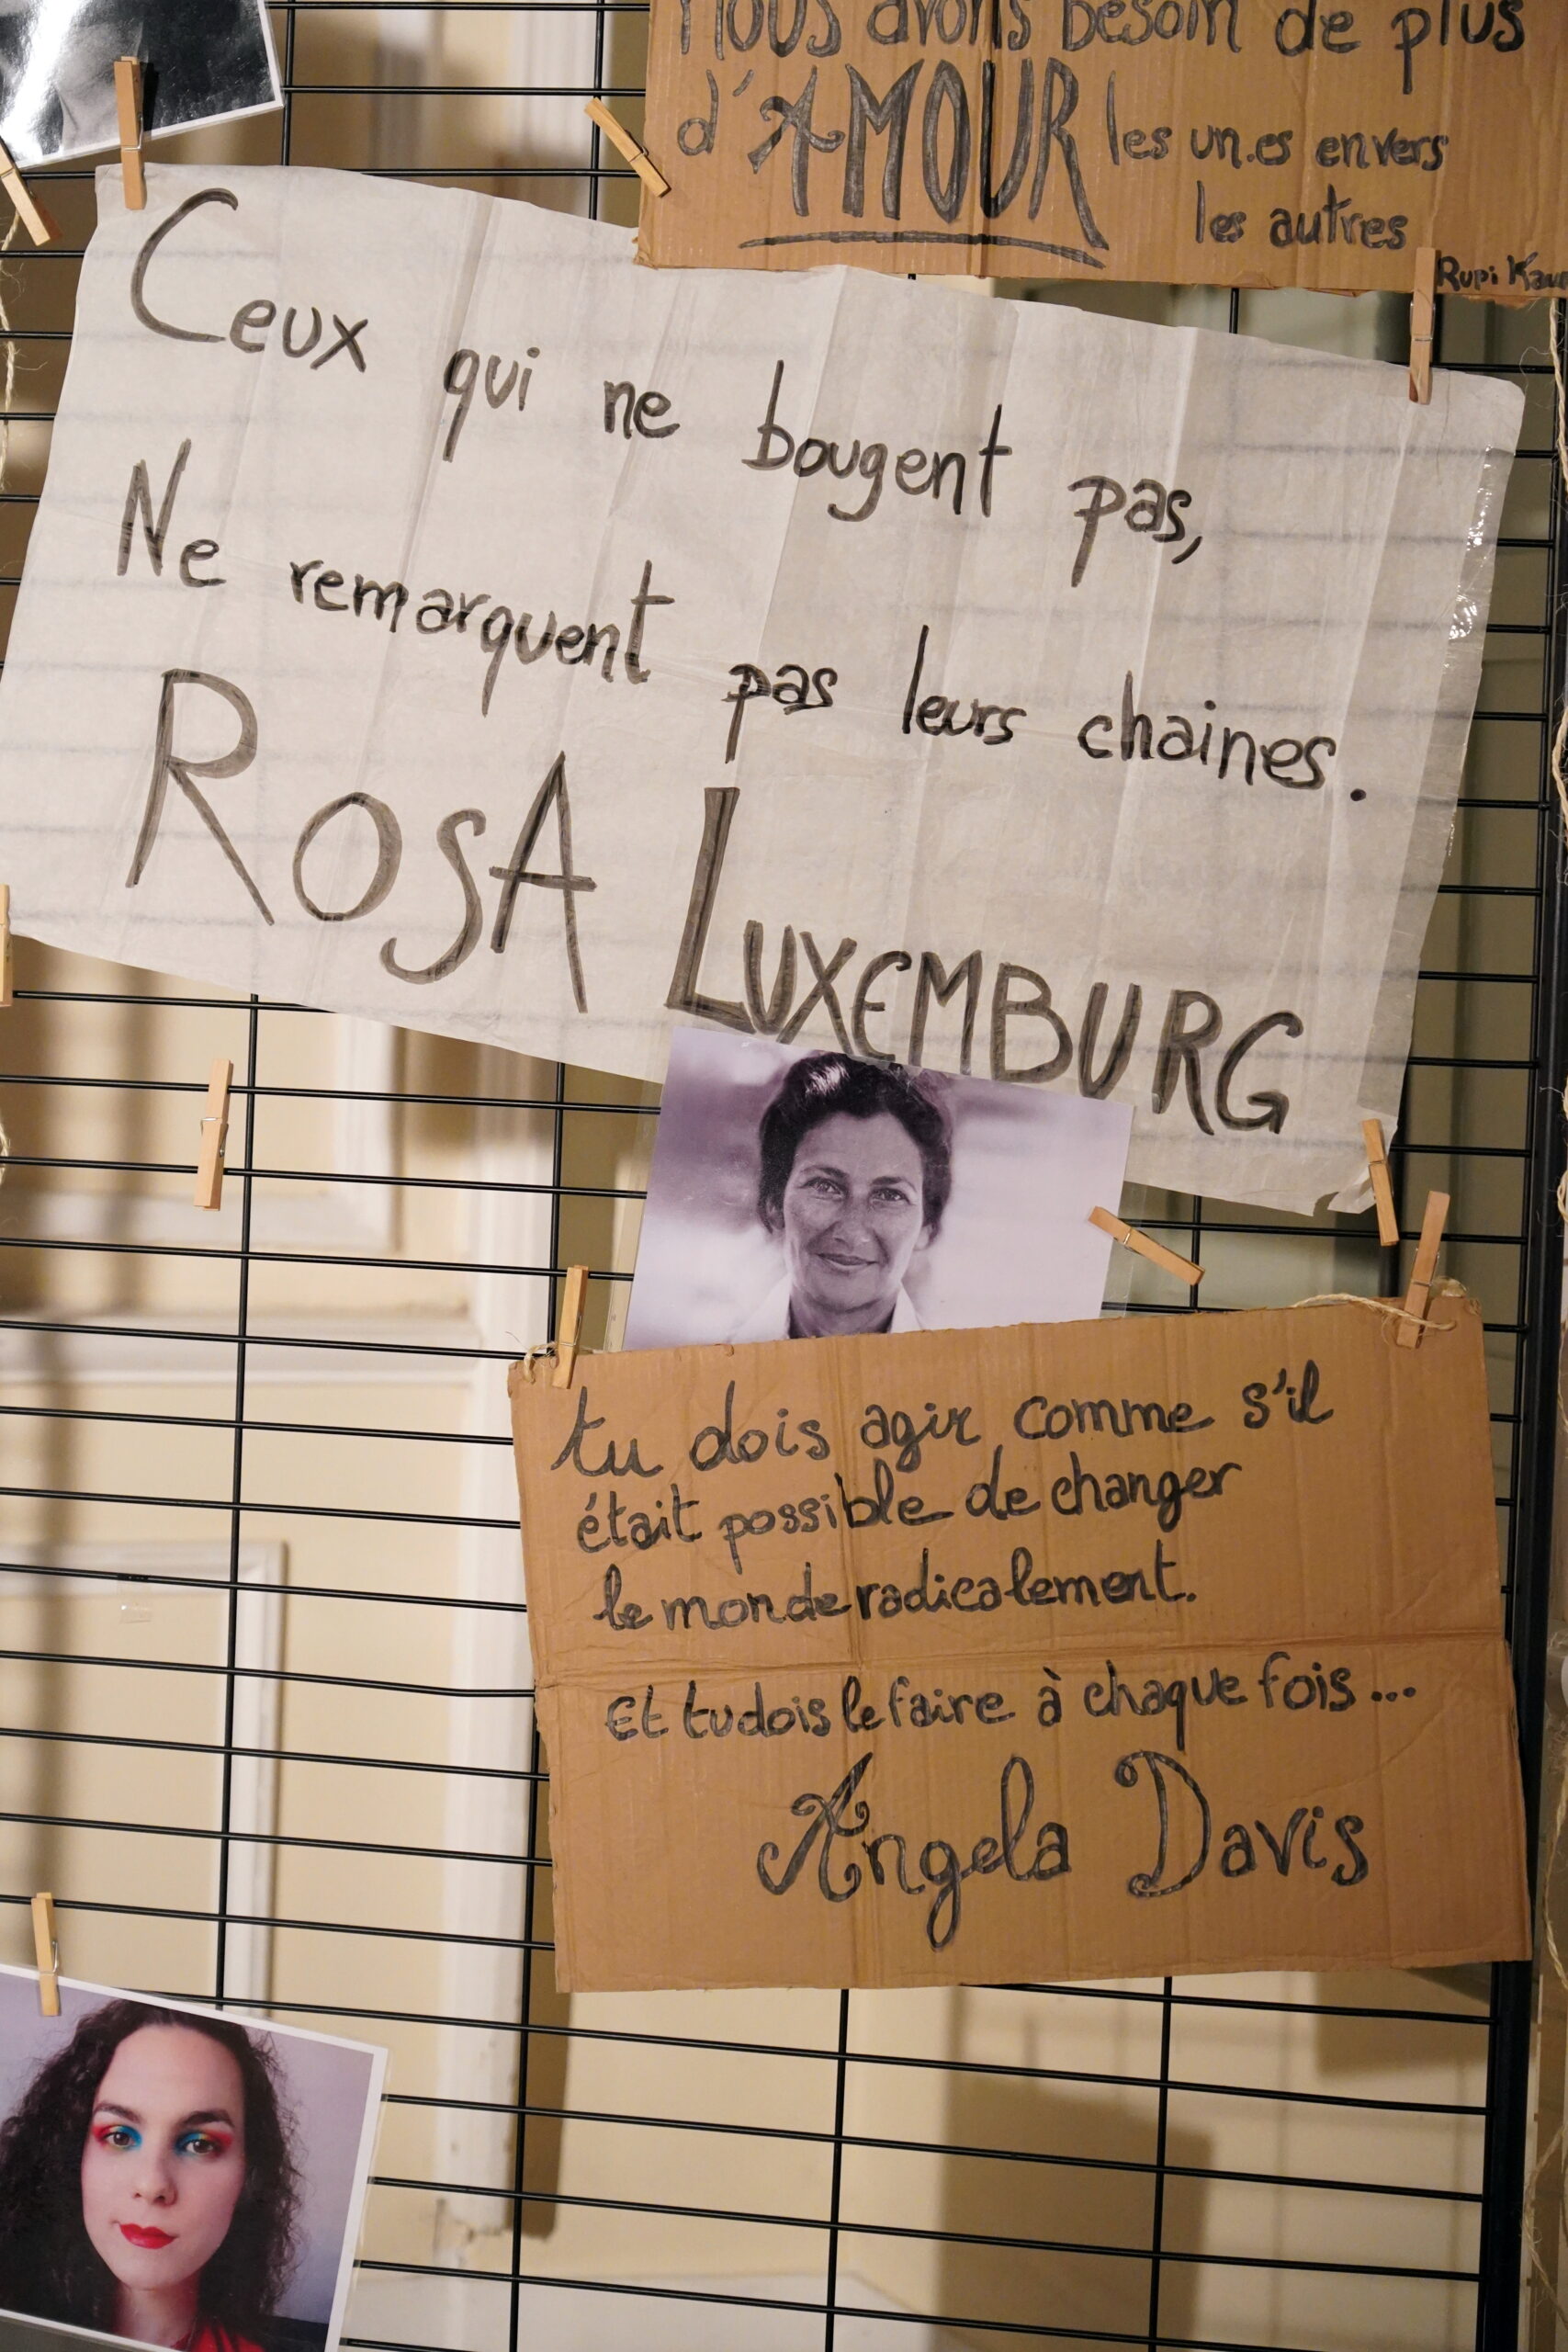 Nous avons besoin de plus
d'AMOUR les un.es envers
les autres
Rupi
Ceux qui ne bougent pas,
Ne remarquent pas leurs chaines.
ROSA LUXEMBURG
tu dois agir comme s'il
était possible de changer
le monde radicalement.
Et tu dois le faire à chaque fois...
Angela Davis